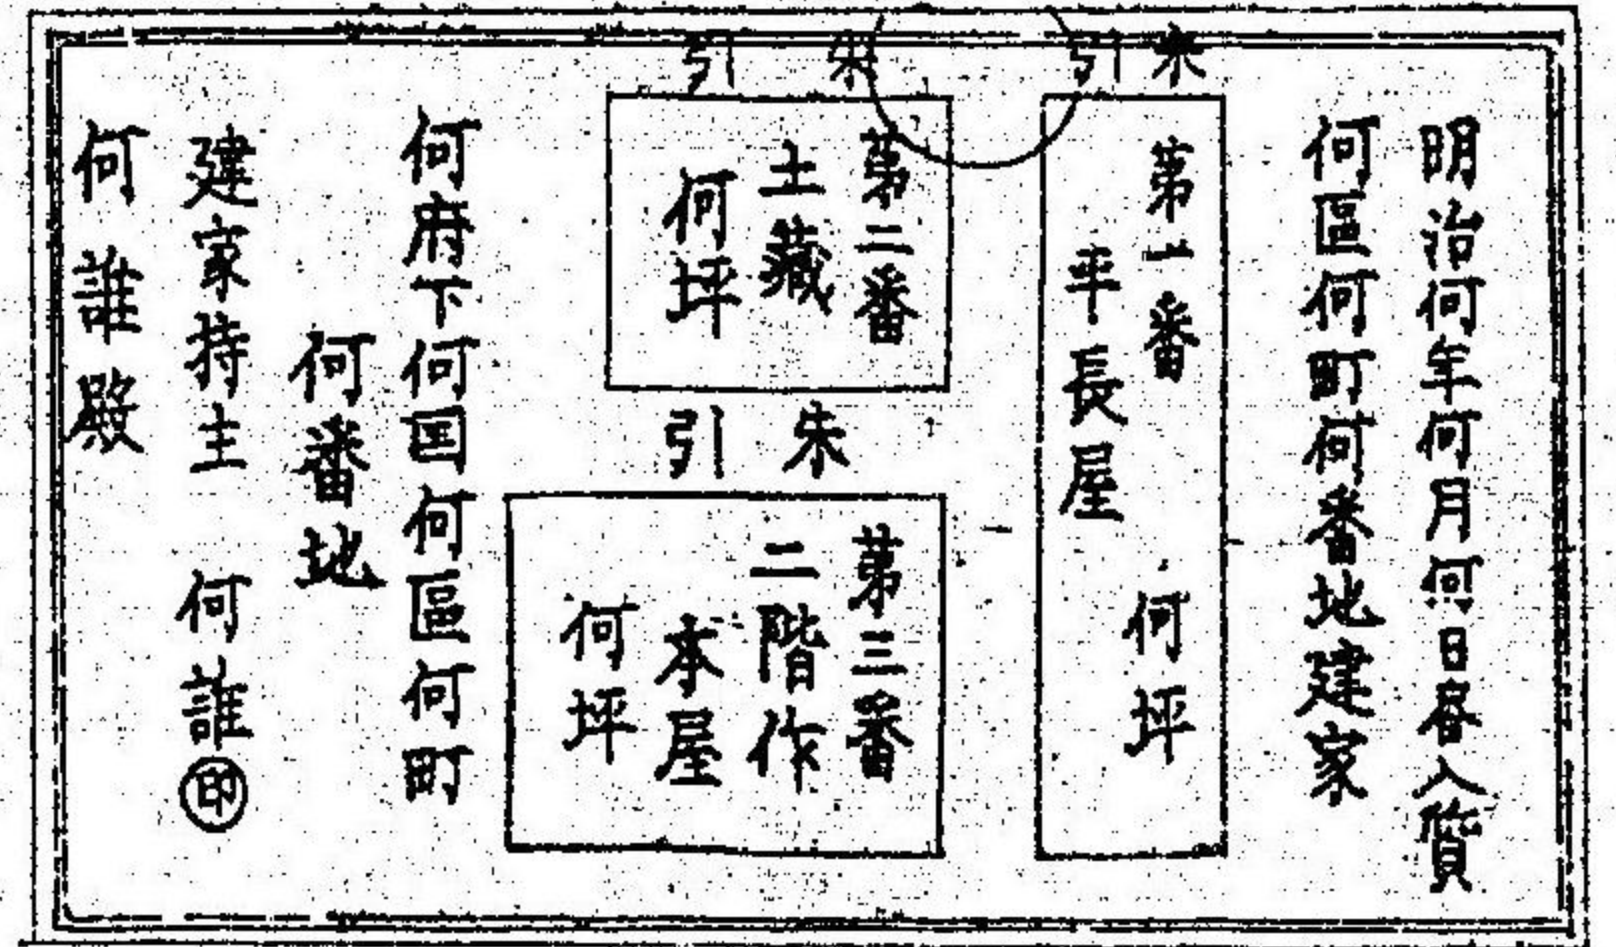 明治何年何月何日書入質
何區何町何番地建家
朱引
第一番
平長屋
何坪
朱引
第二番
土藏
何坪
朱引
第三番
二階作
本屋
何坪
何府下何国何區何町
何番地
建家持主 何誰㊞
何誰殿